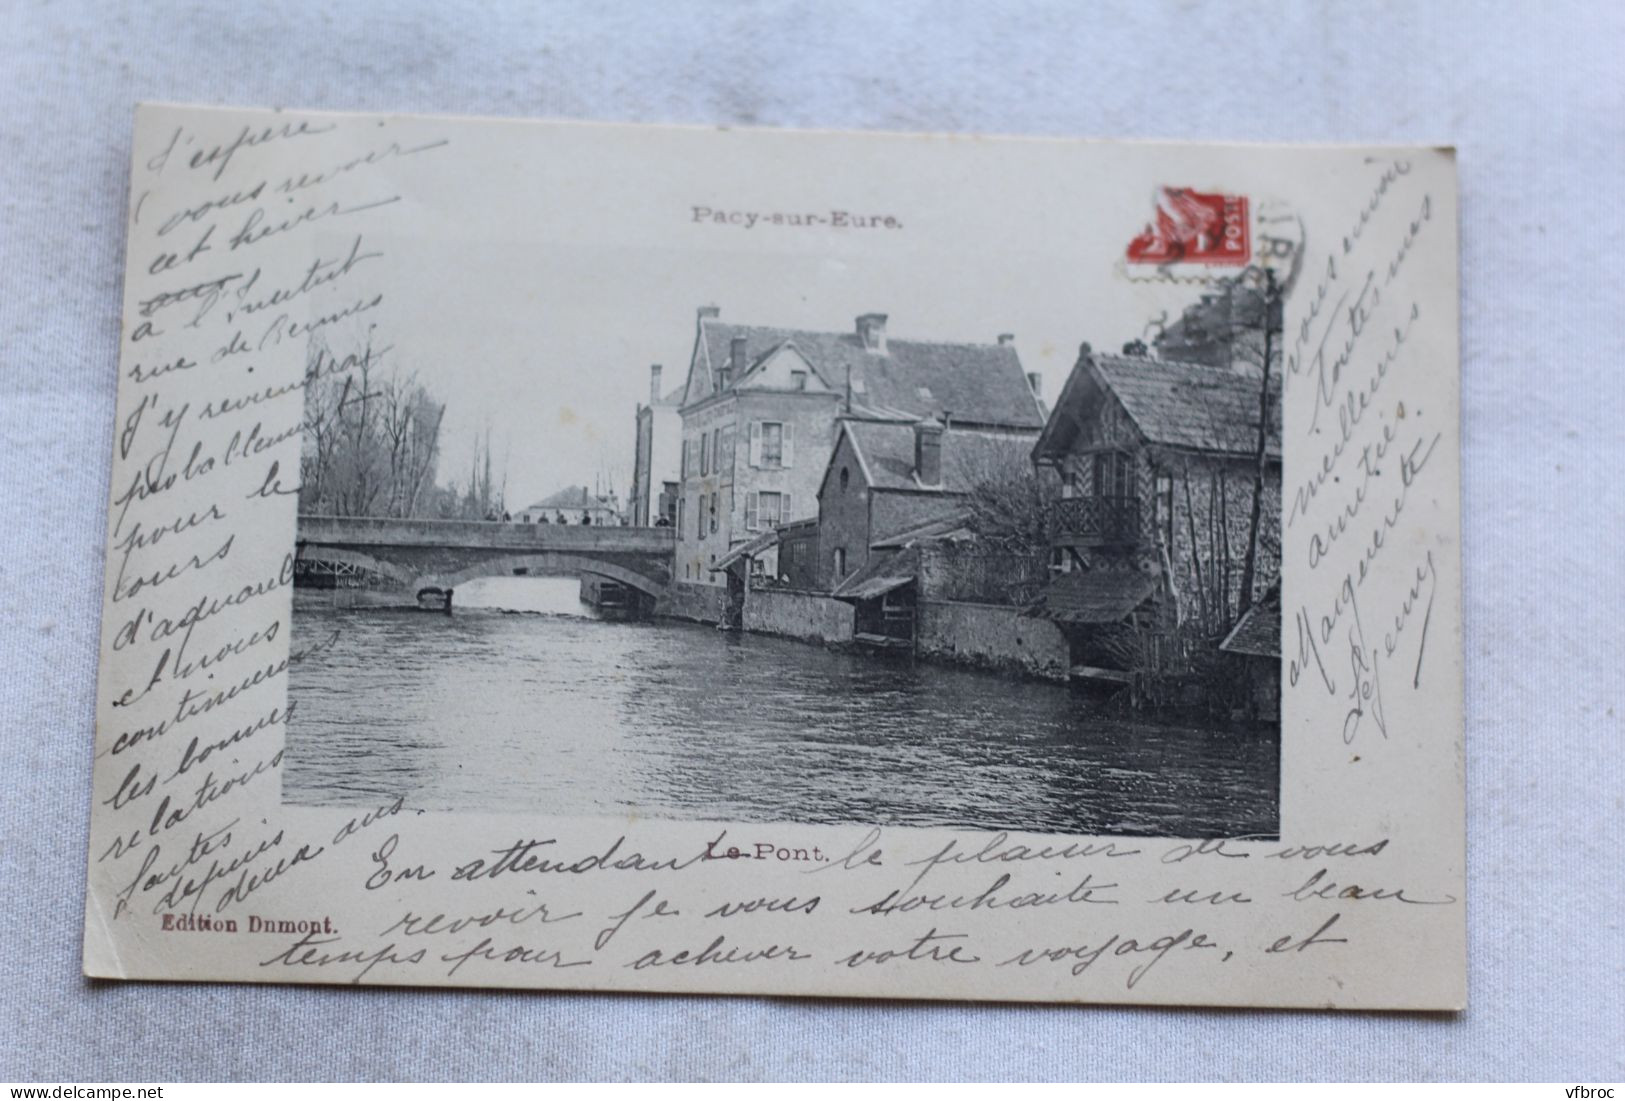 J'espère
vous revoir
cet hiver
à l'Institut
rue de Rennes
J'y reviendrai
probablement
pour le
cours
d'aquarel
et nous
continuerons
les bonnes
relations
faites
depuis
deux ans.
Pacy-sur-Eure.
POSTES
Le Pont.
Edition Dnmont.
En attendant le plaisir de vous
revoir je vous souhaite un beau
temps pour achever votre voyage, et
vous envoie
toutes mes
meilleures
amitiés.
Marguerite
vfbroc